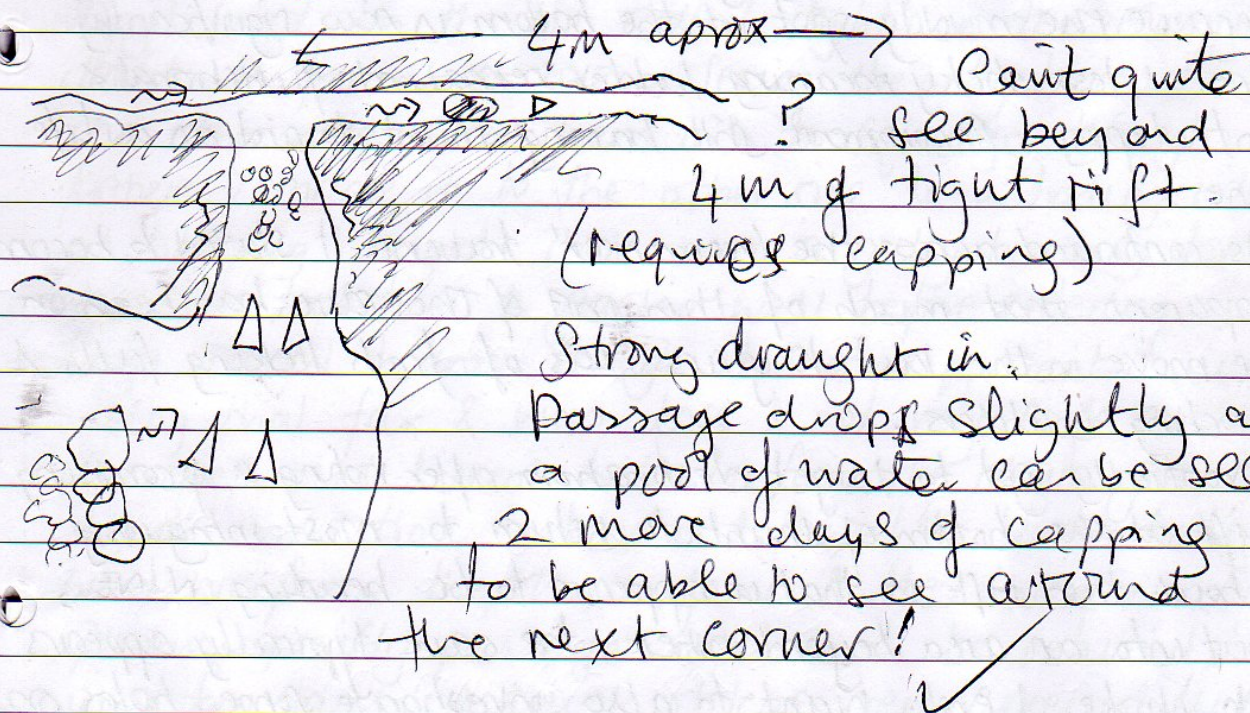 4m aprox
Can't quite
? see beyond
4m of tight rift.
(requires capping)
Strong draught in.
Passage drops slightly a
a pool of water can be see
2 more days of capping
to be able to see around
the next corner!